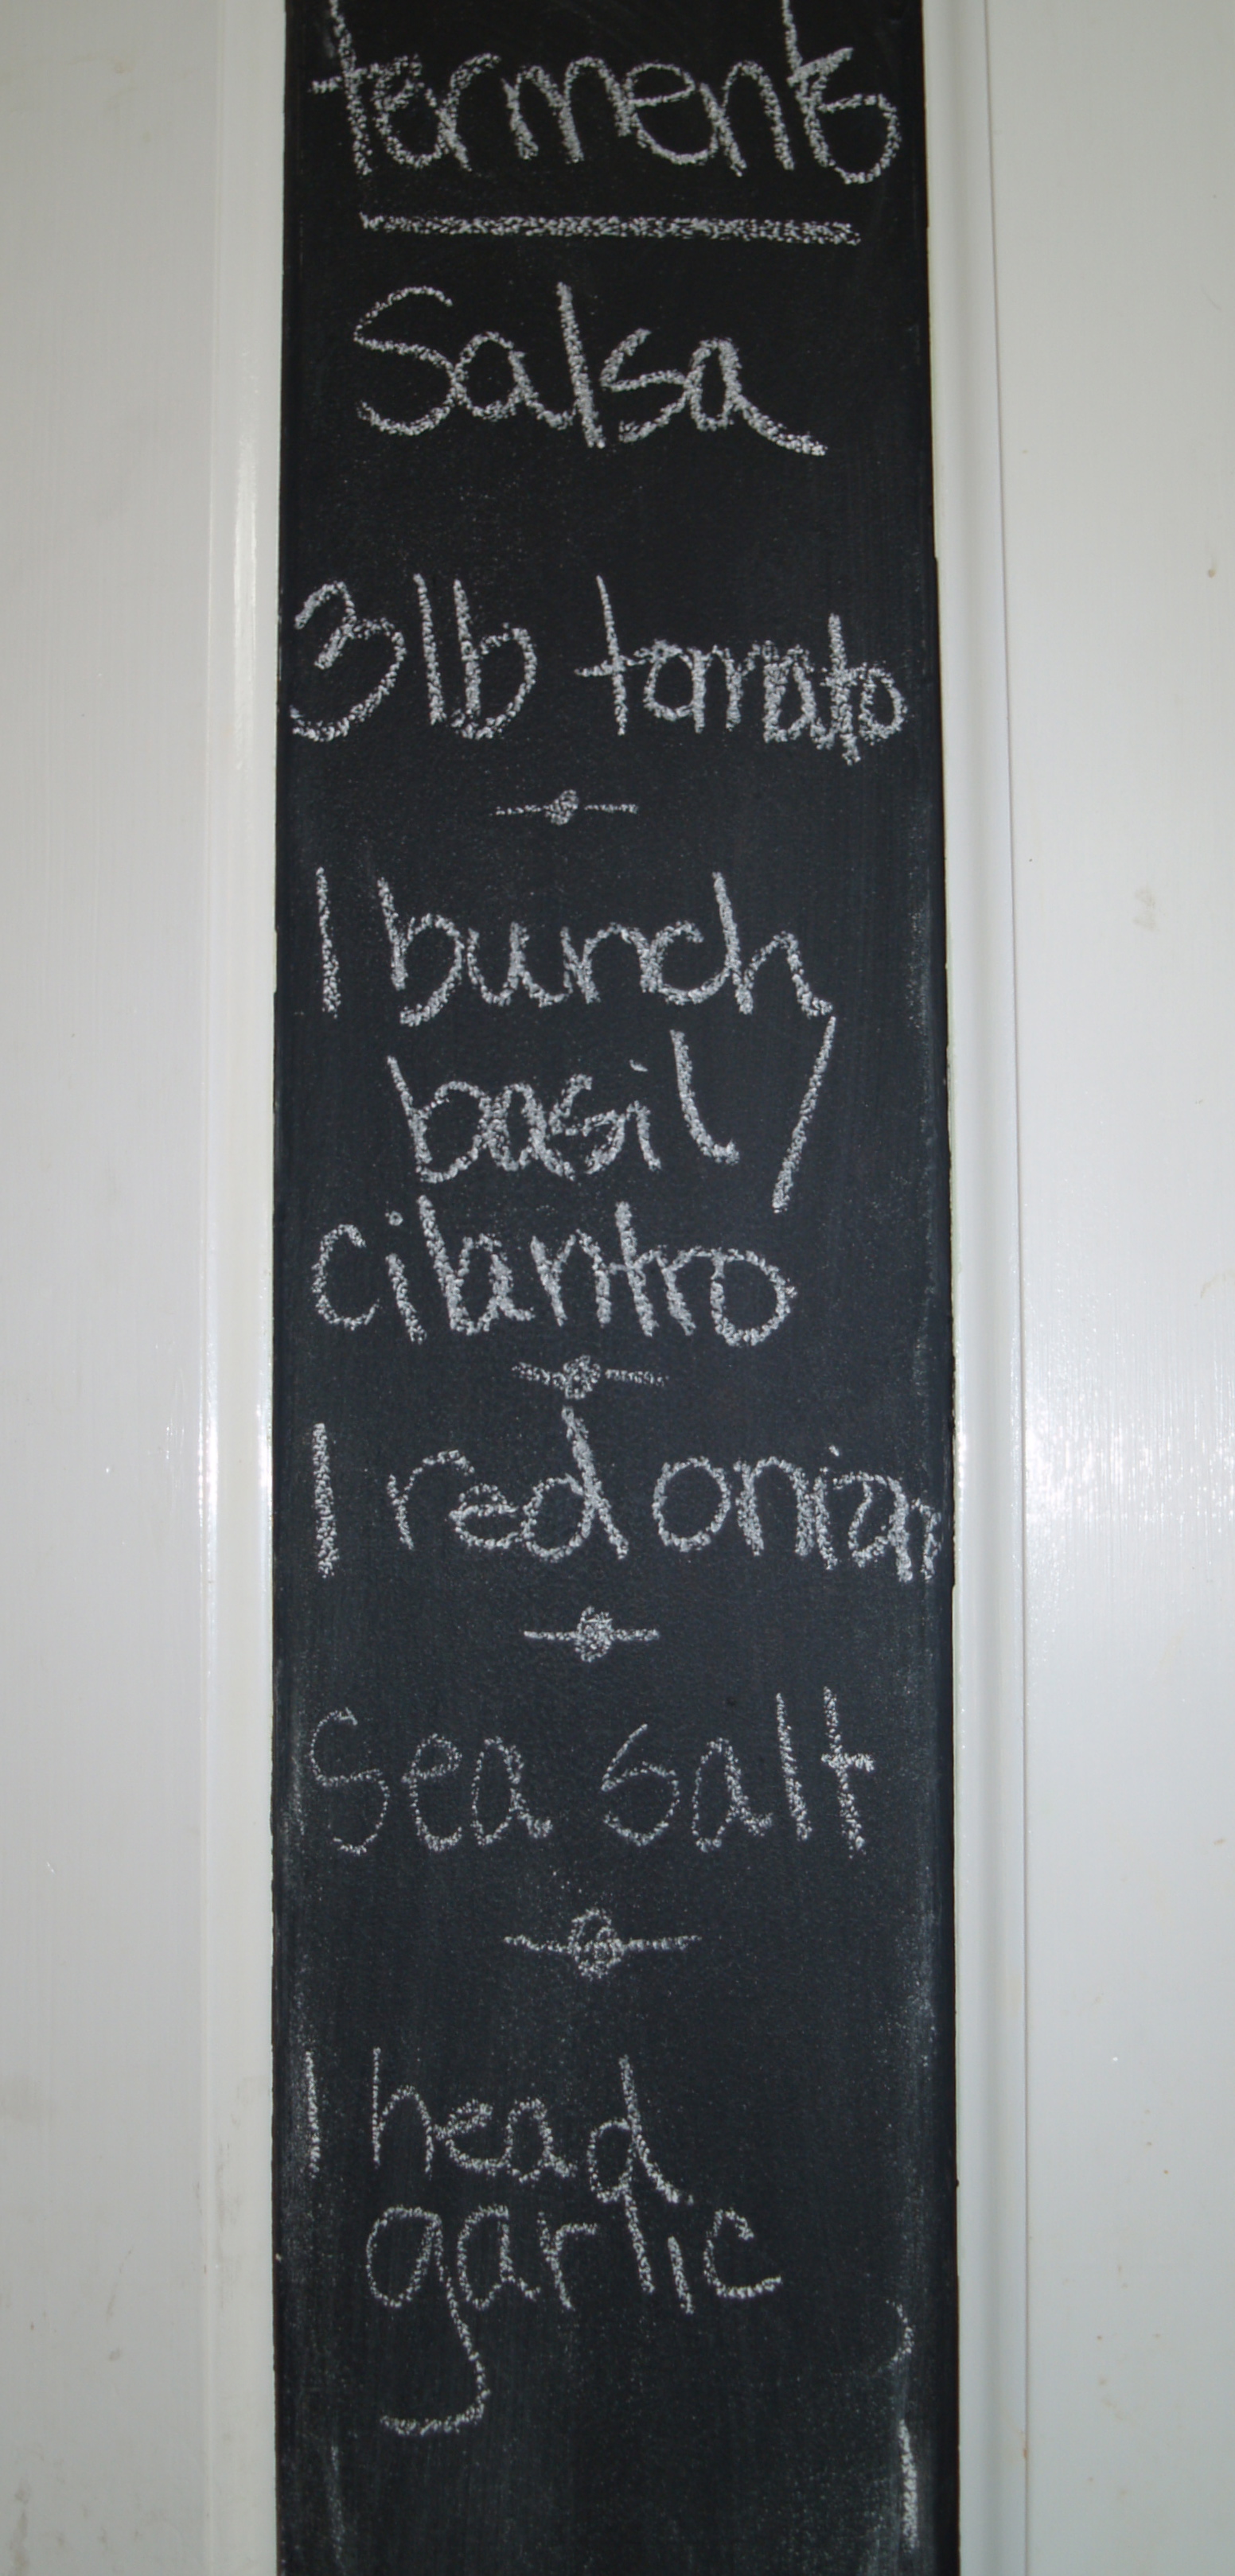 ferments
Salsa
3lb tomato
1 bunch
basil/
cilantro
1 red onion
Sea salt
1 head
garlic